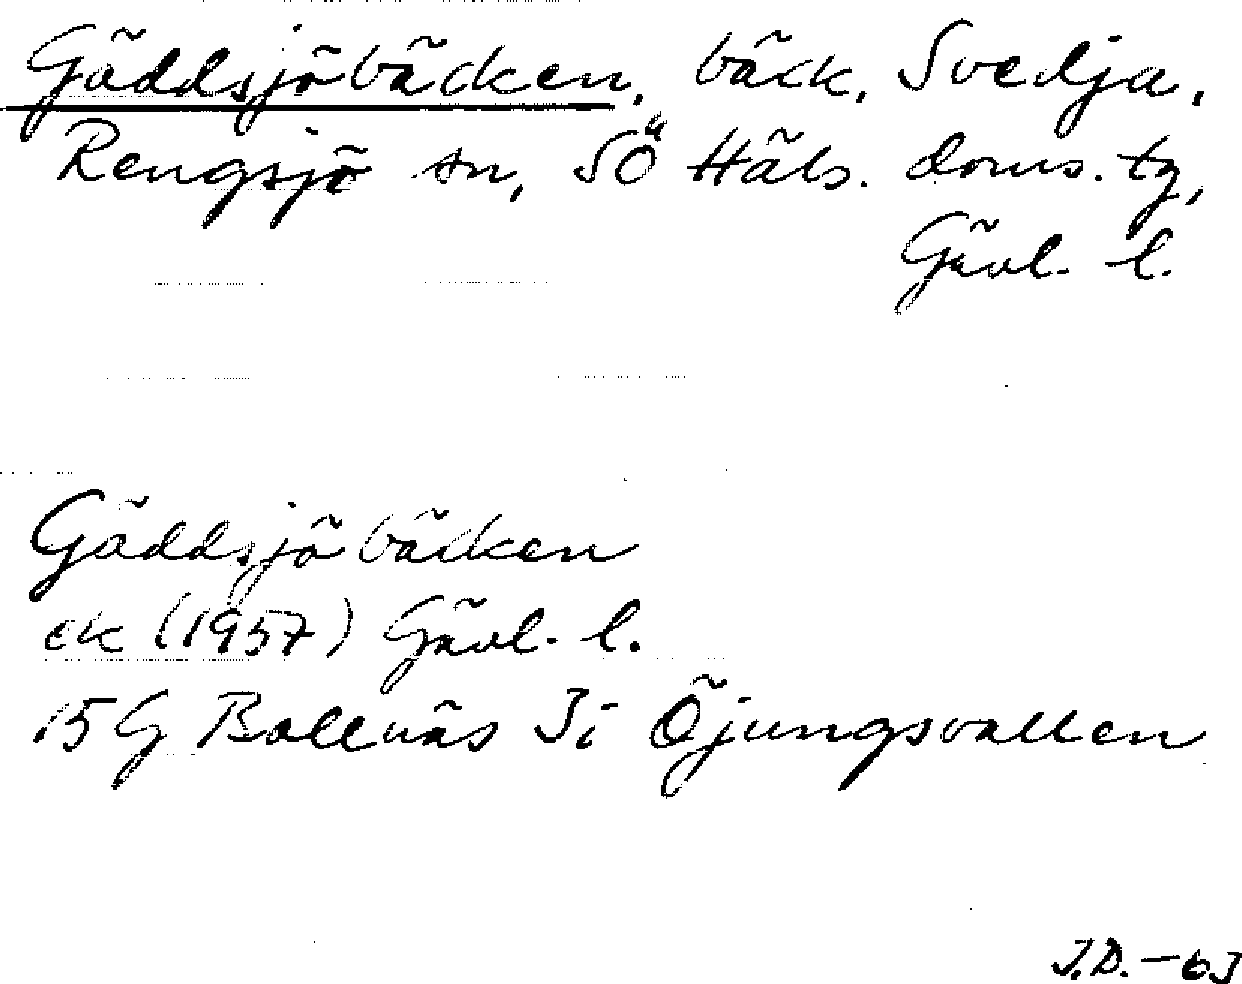 Gäddsjöbäcken, bäck, Svedja,
Rengsjö sn, SÖ Häls. doms. tg,
Gävl. l.
Gäddsjöbäcken
ek (1957) Gävl. l.
15 G Bollnäs 3i Öjungsvallen
J.D. - 63